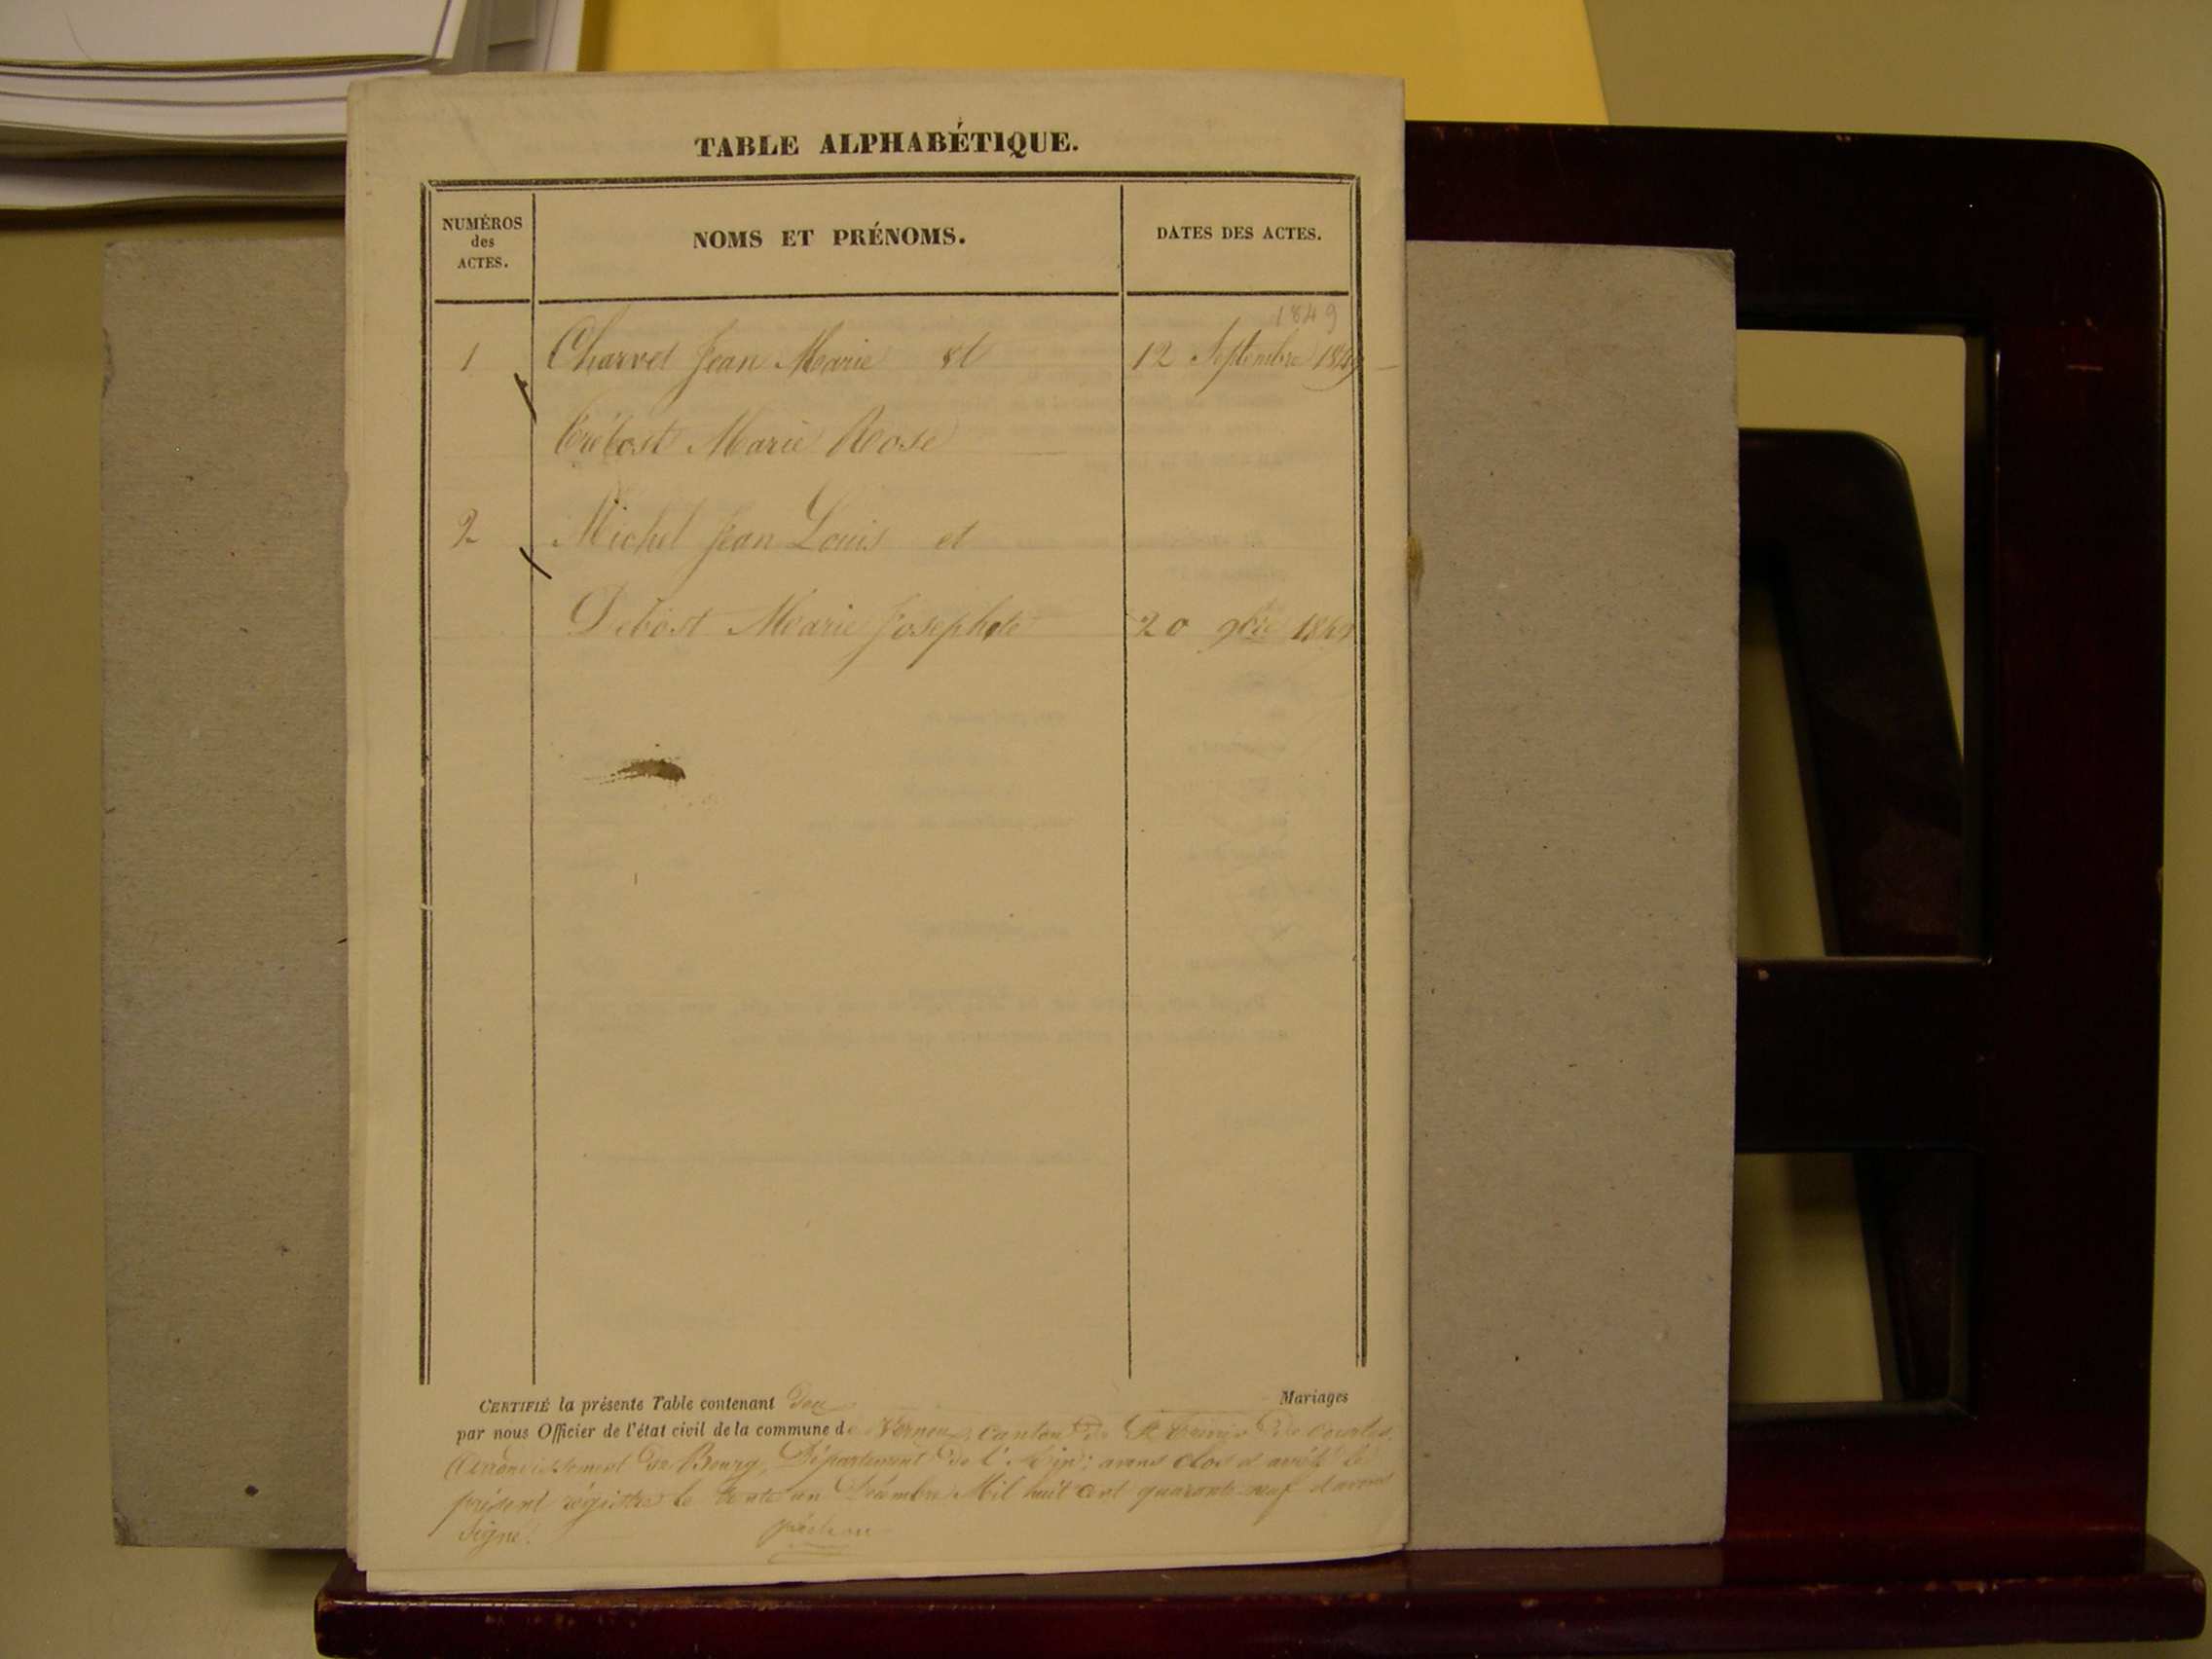 TABLE ALPHABÉTIQUE.
NUMÉROS des ACTES.
NOMS ET PRÉNOMS.
DATES DES ACTES.
1849
1 Charvet Jean Marie et 12 Septembre 1849
Trébost Marie Rose
2 Michel Jean Louis et
Debost Marie Josephte 20 9bre 1849
CERTIFIÉ la présente Table contenant deux Mariages
par nous Officier de l'état civil de la commune de canton de St Trivier de Courtes
Arrondissement de Bourg, Département de l'Ain; avons clos et arrêté le
présent régistre le trente un Décembre Mil huit cent quarante neuf et avons
Signé.